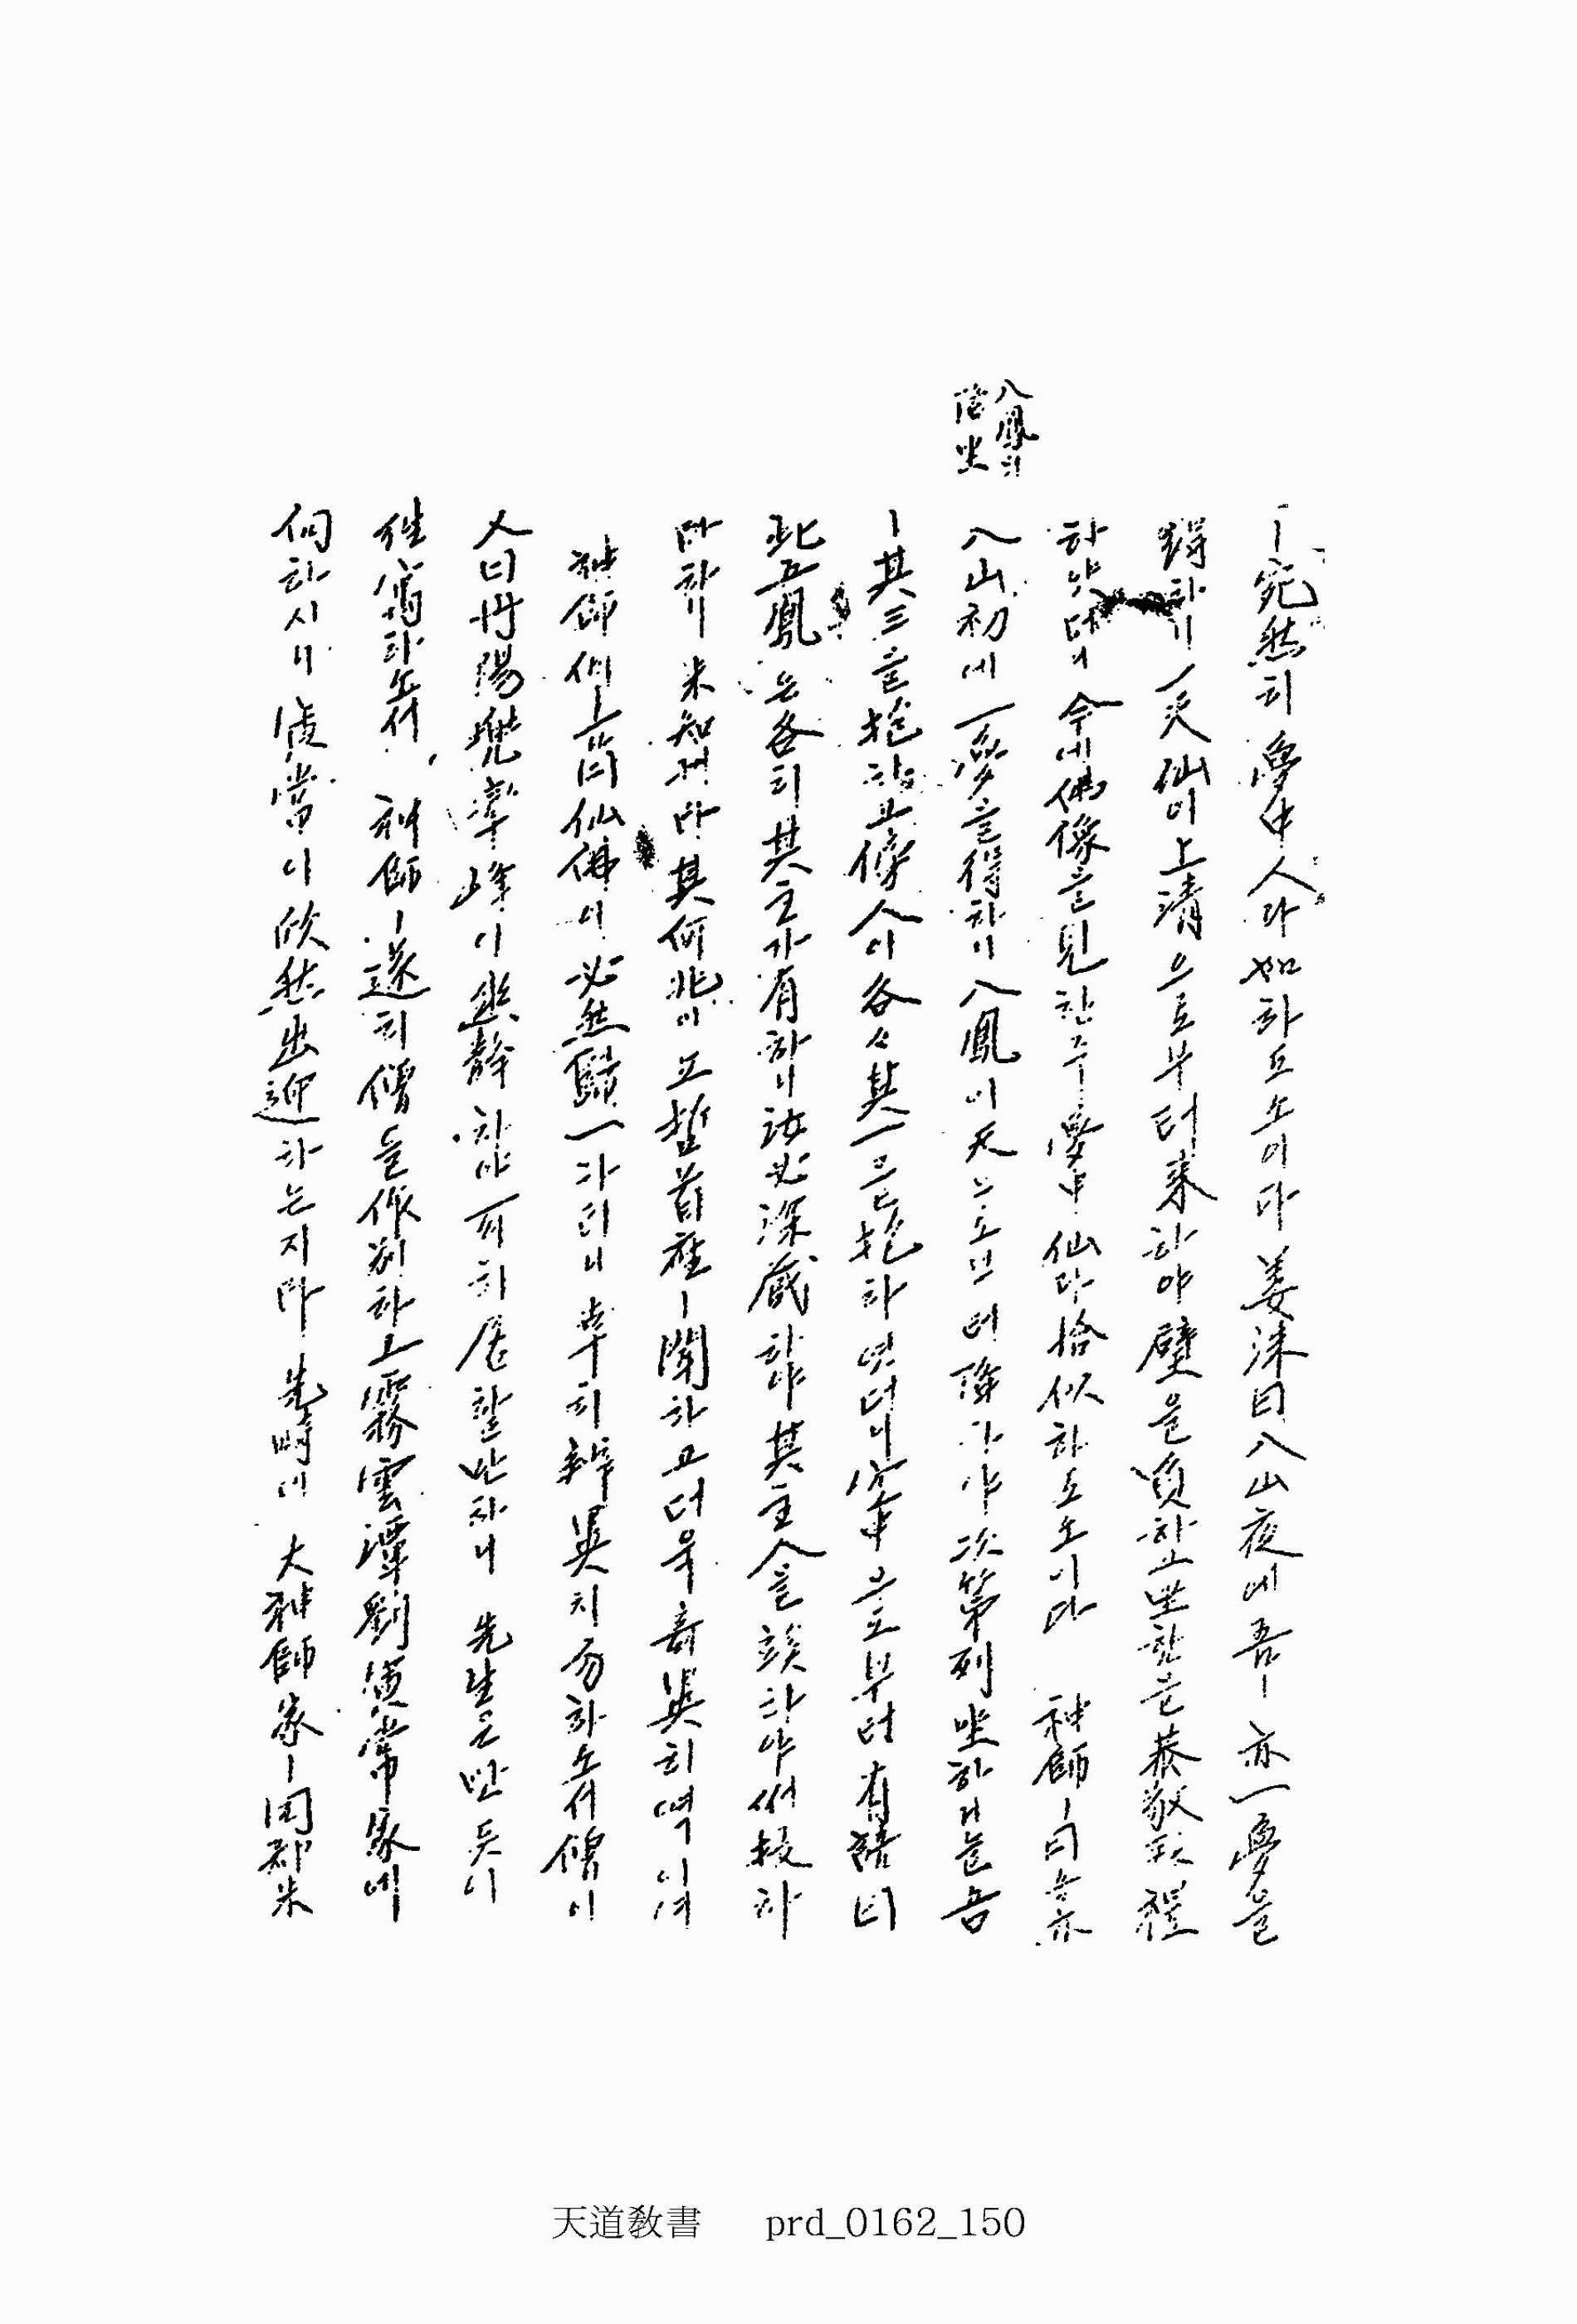 八鳳의
降坐
ㅣ宛然히 夢中人과 如하도소이다 姜洙曰入山夜에 吾ㅣ 亦一夢을
得하니 一天仙이 上淸으로부터 來하야 壁을 負하고 坐한 恭敬
하얏더니 今에 佛像을 見한 즉 夢中仙과 恰似하도소이다 神師ㅣ曰 吾亦
入山初에 一夢을 得하니 八鳳이 天으로브터 降하야 次第列坐하거늘 吾
ㅣ 其三을 抱하고 傍人이 各各 其一을 抱하엿더니 空中으로부터 有語曰
此五鳳은 各히 其主가 有하니 汝必深藏하야 其主人을 竢하야써 授하
라하니 未知케라 其何兆이고 哲首座ㅣ 聞하고 더욱 奇異히 역이며
神師 曰 仙佛이 必然歸一하리니 幸히 辨異치 勿하소셔 僧이
又曰丹陽兜率峰이 幽靜하야 可히 居할만하니 先生은 반듯이
往寓하쇼셔 神師ㅣ 遂히 僧을 作別하고 霧雲潭劉寅常家에
向하시니 寅常이 欣然出迎하는지라 先時에 大神師家ㅣ 同郡米
天道教書 prd_0162_150